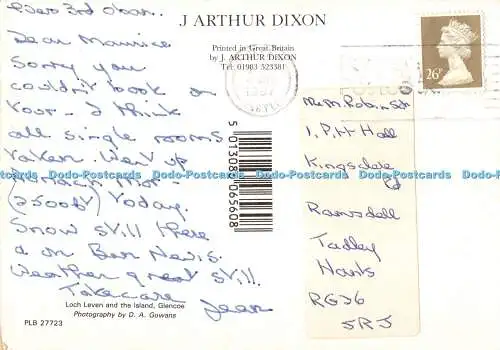 J ARTHUR DIXON
Printed in Great Britain
by J. ARTHUR DIXON
Tel: 01983 523381
26P
Dear Maurice
Sorry you
couldn't book on
Tour - I think
all single rooms
taken. Went up
(2500ft) Today.
Snow still there
& on Ben Nevis.
Weather great still.
Take care Jean
5 013080 065608
Loch Leven and the Island, Glencoe
Photography by D. A. Gowans
PLB 27723
Mr M Robinson
1, Pitt Hall
Kingsdere
Rd
Ramsdell
Tadley
Hants
RG26
5RJ
Dodo-Postcards Dodo-Postcards Dodo-Postcards Dodo-Postcards Dodo-Postcards